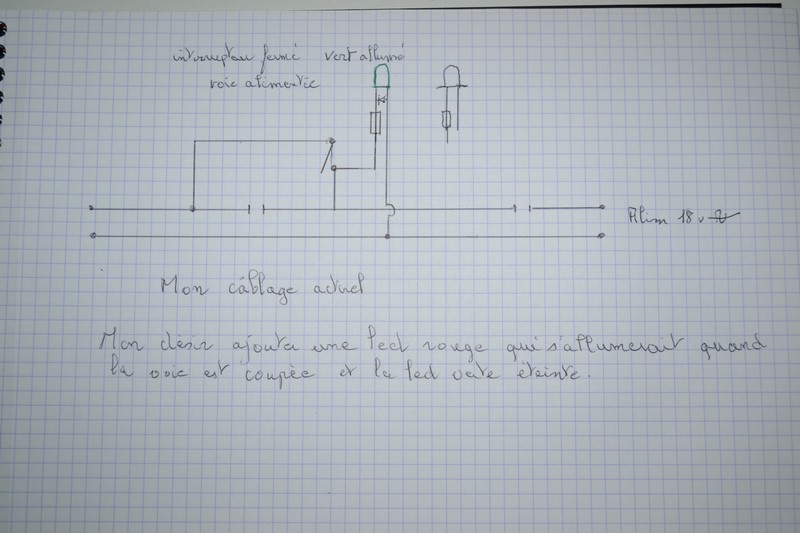 interrupteur fermé vert allumé
voie alimentée
Alim 18 v
Mon câblage actuel
Mon désir ajouter une led rouge qui s'allumerait quand
la voie est coupée et la led verte éteinte.